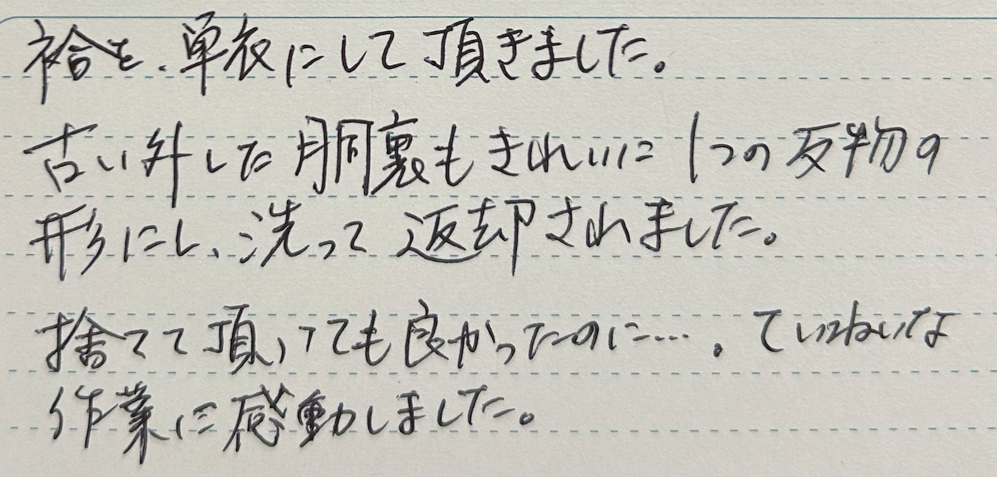 袷を、単衣にして頂きました。
古い外した胴裏もきれいに1つの反物の
形にし、洗って返却されました。
捨てて頂いても良かったのに…。ていねいな
作業に感動しました。